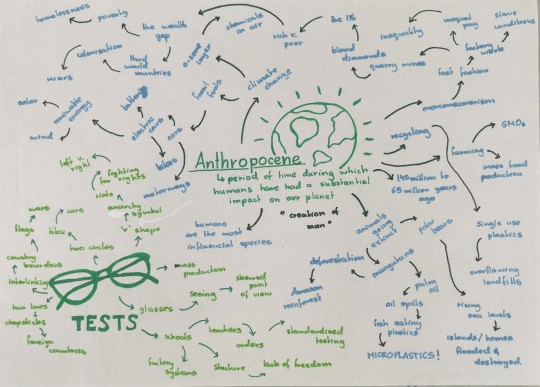 homelessness
poverty
the wealth
gap
chemicals
in air
rich v.
poor
the 1%
inequality
unequal
pay
slave
conditions
colonisation
third
world
countries
o-zone
layer
blood
diamonds
quarry mines
factory
work
fast fashion
wars
solar
renewable
energy
wind
battery
electric
cars
cars
bikes
motorways
fossil
fuels
climate
change
overconsumerism
recycling
farming
GMOs
mass food
production
Anthropocene
↳ period of time during which
humans have had a substantial
impact on our planet
"creation of
man"
145 million to
65 million years
ago
left v.
right
fighting
for rights
riots
anarchy
symbol
'v' shape
wars
cars
flags
bike
two circles
country
boundries
interlinking
two lens
chopsticks
foreign
countries
humans
are the most
influencial species
animals
going
extinct
polar
bears
single use
plastics
deforestation
orangutans
overflowing
landfills
Amazon
rainforest
palm
oil
oil spills
fish eating
plastics
MICROPLASTICS!
rising
sea levels
islands/homes
flooded &
destroyed
TESTS
mass
production
glasses
seeing
skewed
point
of view
schools
teachers
orders
standardised
testing
factory
systems
structure
lack of freedom